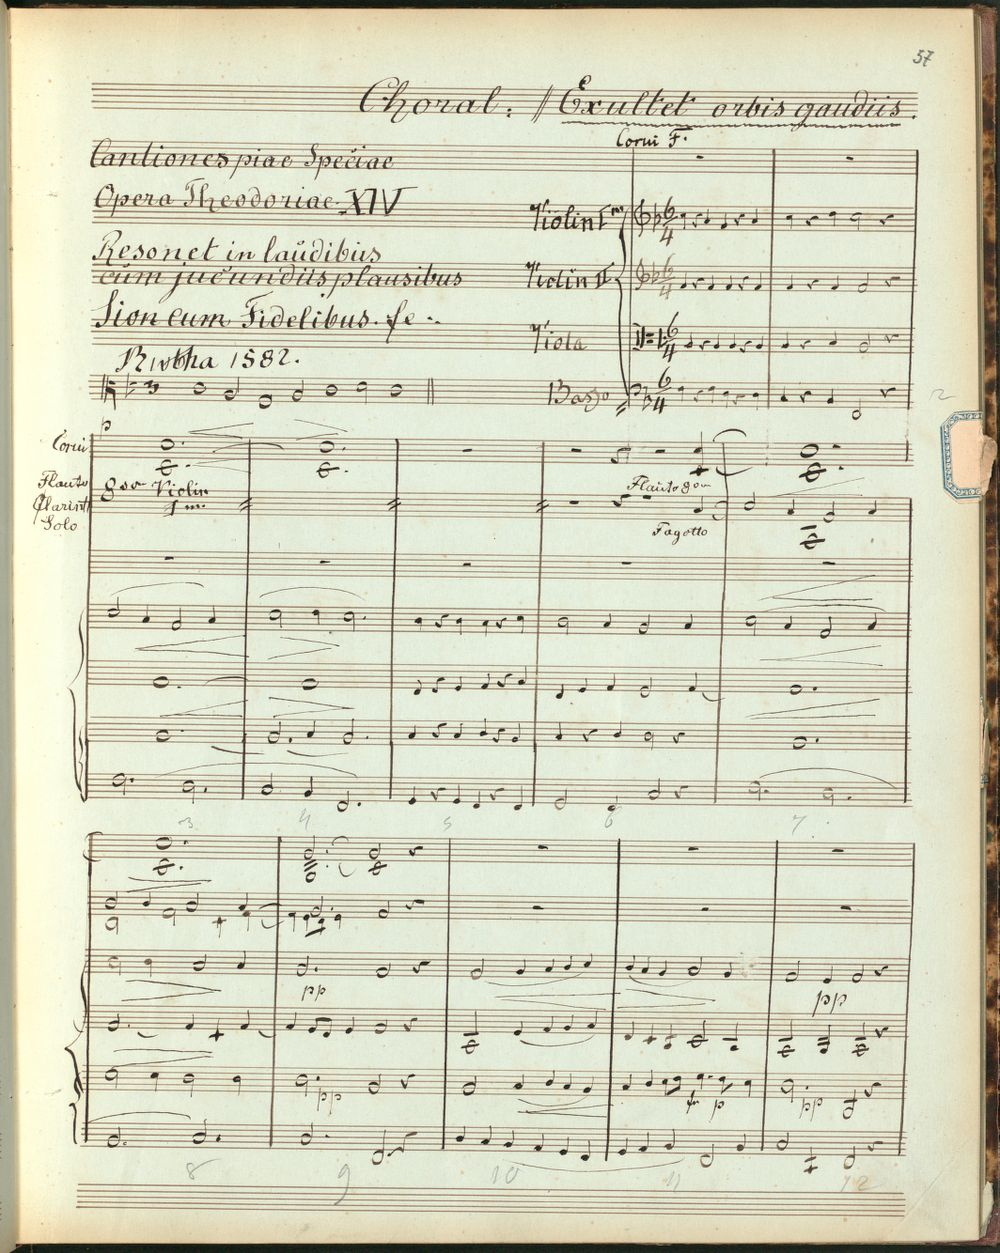 57
Choral: // Exultet orbis gaudiis.
Cantiones piae Speciae
Opera Theodoriae XIV
Resonet in laudibus
cum jucundiis plausibus
Sion cum Fidelibus.
1582.
Corni F.
Violin I
6 4
Violin II
6 4
Viola
6 4
Basso
6 4
12
p
Corni
Flauto
Clarint
Solo
8va Violin
Flauto 8va
Fagotto
3 4 5 6 7
pp
pp
pp
p
pp
8 9 10 11 12